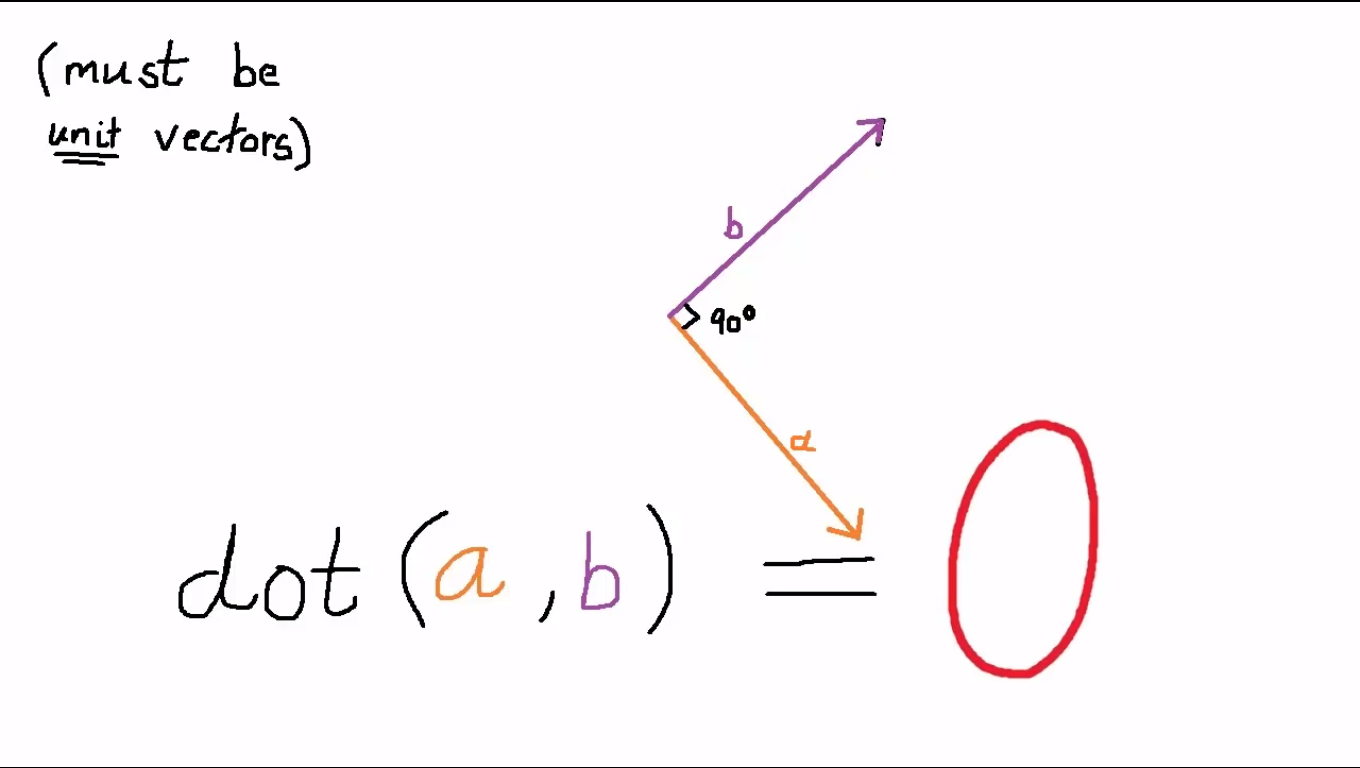 (must be
unit vectors)
b
90°
a
dot(a,b) = 0